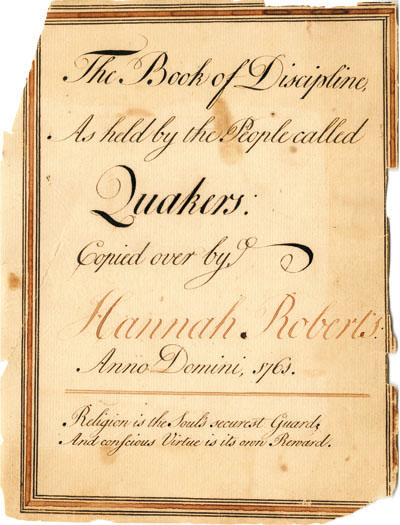 The Book of Discipline,
As held by the People called
Quakers:
Copied over by
Hannah. Roberts:
Anno Domini, 1761.
Religion is the Soul's securest Guard;
And conscious Virtue is its own Reward.